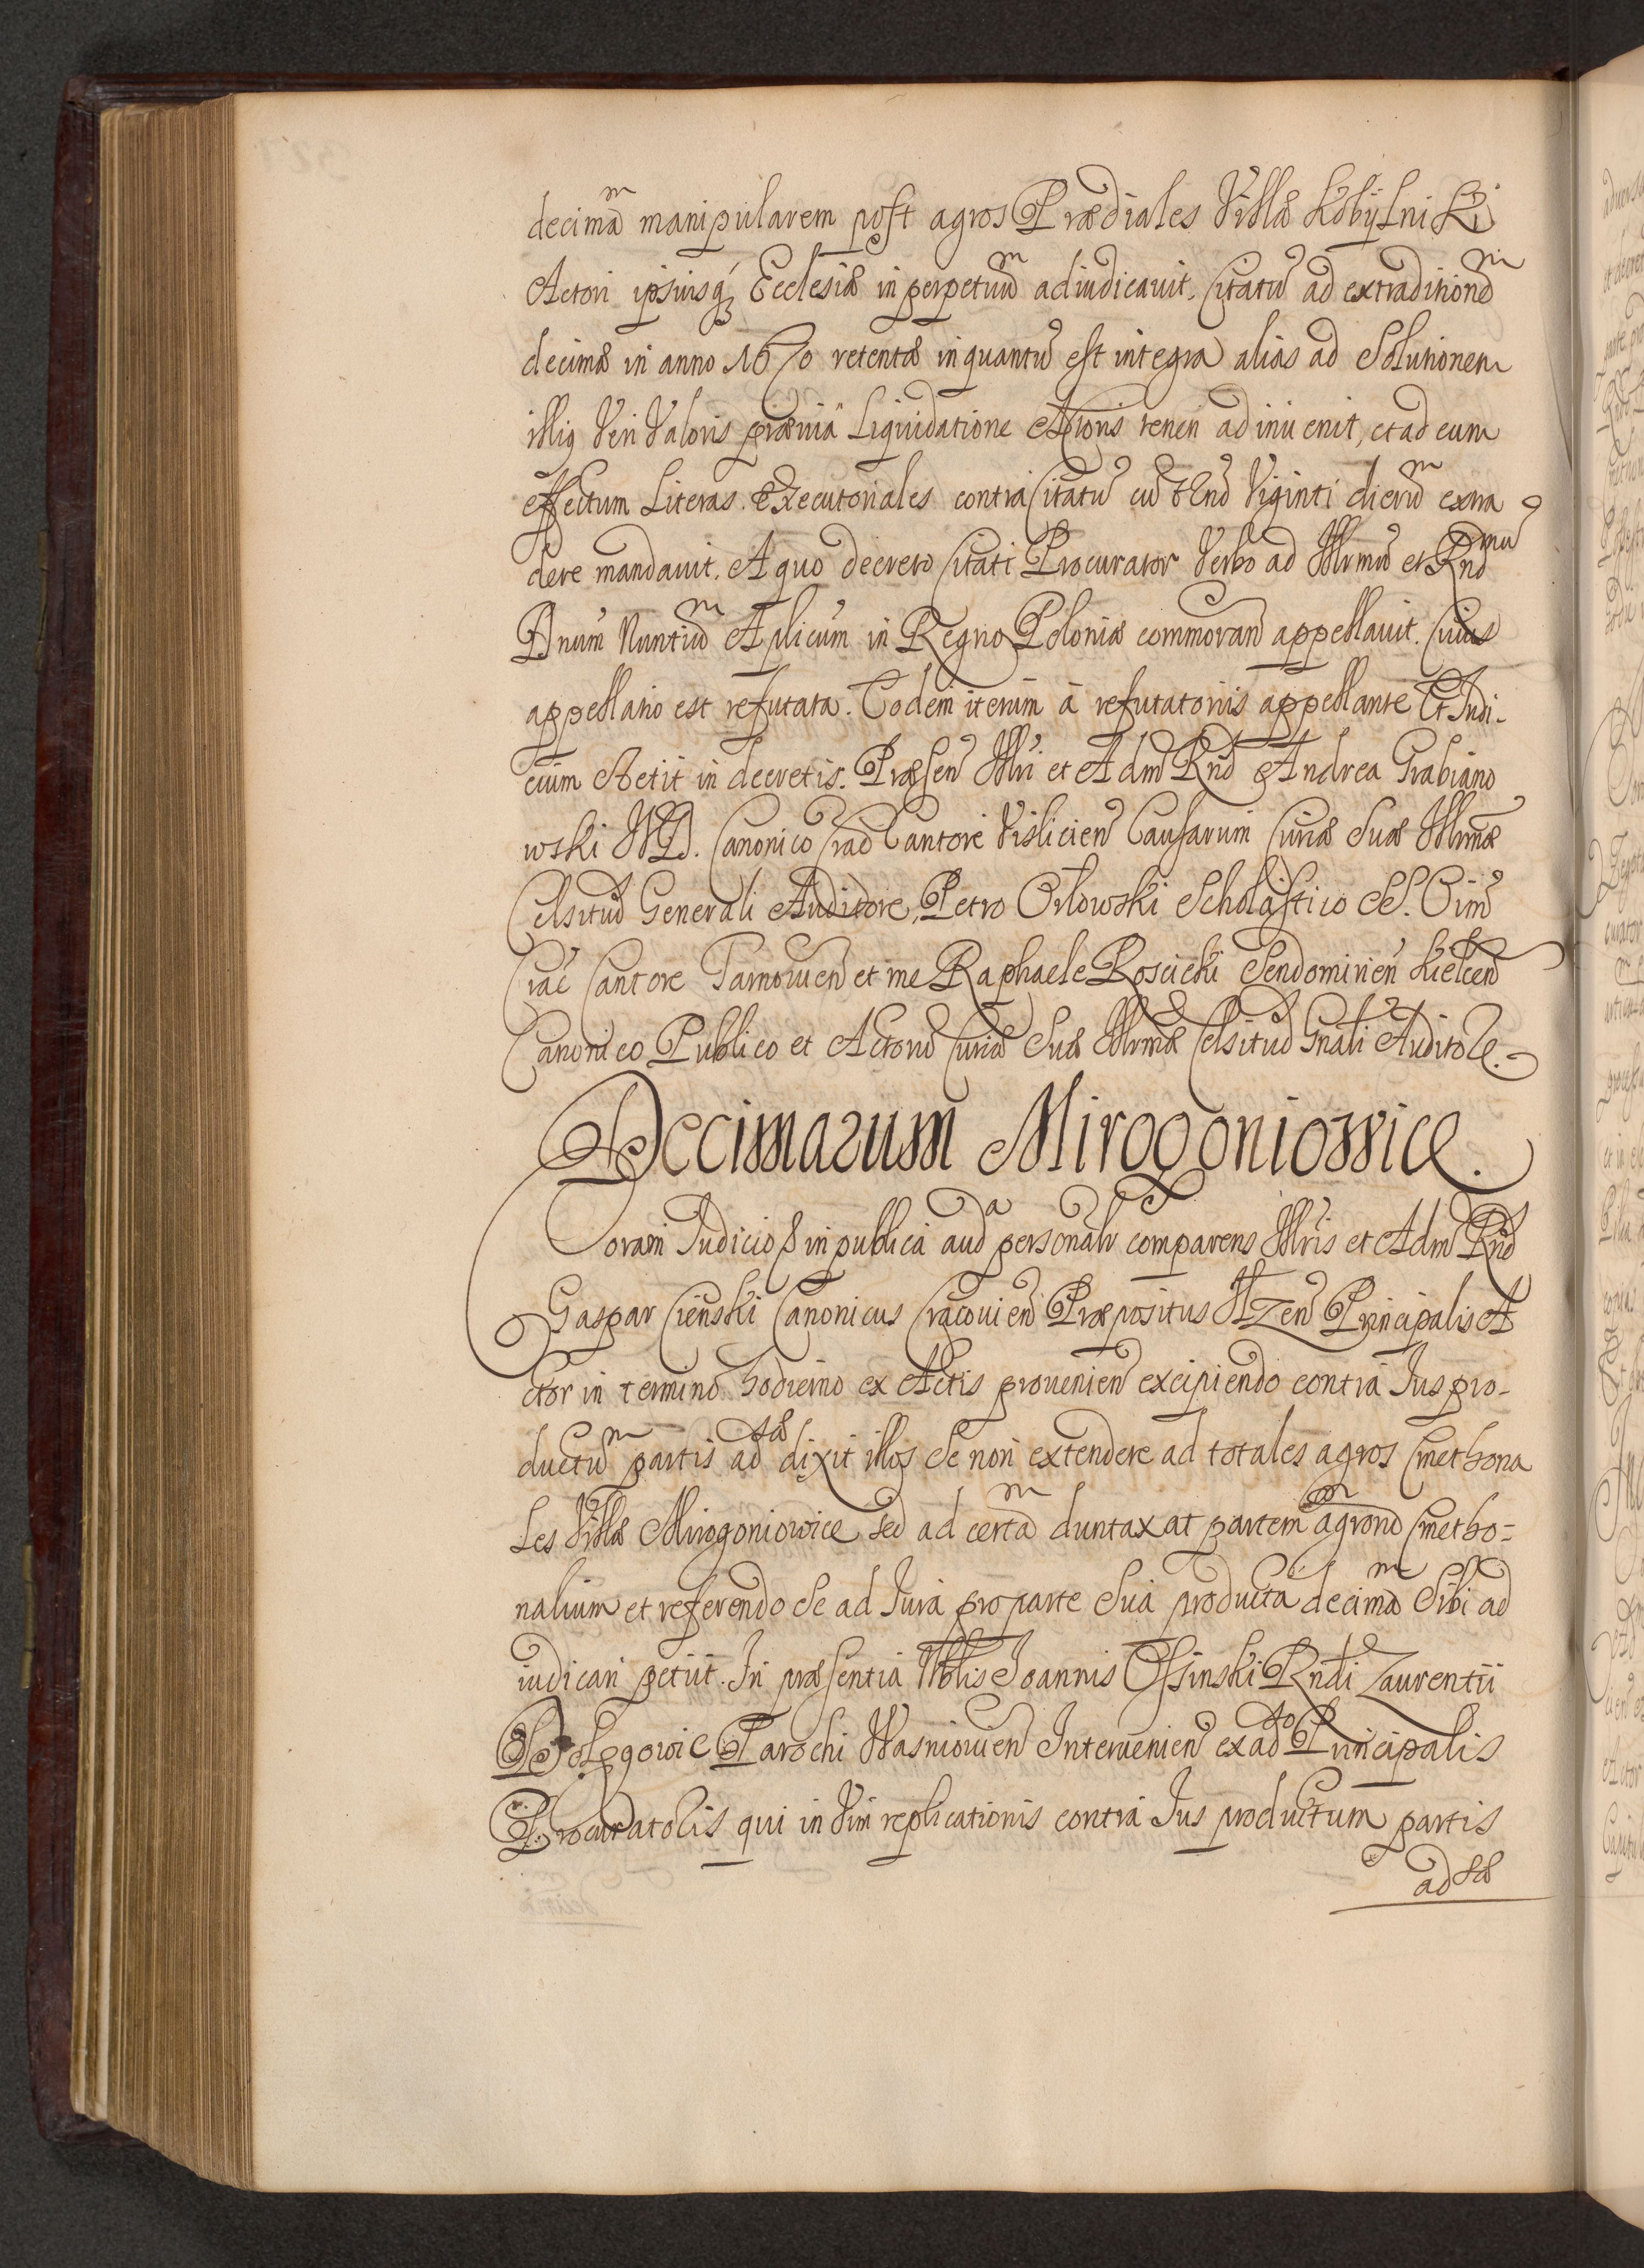 decimã manipularem post agros Prædiales Villæ Kobylniki
Actori ipsiusq Ecclesiæ in perpetuũ adiudicauit. Citatũ ad extraditionẽ
decimæ in anno 1670 retentæ inquantũ est integra alias ad Solutionem
illiq Veri Valoris præuiâ Liquidatione Actoris teneri adinuenit, et ad eum
effectum Literas Executoriales contra Citatũ cũ Viginti dierũ extra
dere mandauit. A quo decreto Citati Procurator Verbo ad Illrmũ et Rndmũ
Dnum Nuntiũ Aplicum in Regno Poloniæ commoran appellauit. Cuius
appellatio est refutata. Eodem iterum à refutatoriis appellante Et Judi-
cium stetit in decretis. Præsen Illri et Adm Rnd Andrea Grabiano
wski Canonico Crac Cantore Vislicien Causarum Curiæ Suæ Illrmæ
Celsitud Generali Auditore, Petro Orłowski Scholastico SS. Oim
Crac Cantore Tarnouien et me Raphaele Roscicki Sendomirien Kielcen
Canonico Publico et Actorũ Curiæ Suæ Illrmæ Celsitud Gnali Auditore.
Decimarum Mirogoniowice.
Coram Judicio in publica audᵃ personalr comparens Illris et Adm Rnd
Gaspar Cienski Canonicus Cracouien Præpositus Principalis A
ctor in termino hodierno ex Actis prouenien excipiendo contra Jus pro-
ductũ partis adᵗᵃᵉ dixit illos Se non extendere ad totales agros Cmethona
Les Villæ Mirogoniowice sed ad certã duntaxat partem agrorũ Cmetho-
nalium et referendo Se ad Jura pro parte Sua producta decimã Sibi ad
iudicari petiit. In præsentia Nblis Joannis Ossinski Rndi Laurentii
Parochi Wasniouien Interuenien ex adᵗᵒ Principalis
Procuratoris qui in Vim replicationis contra Jus productum partis
adᵗᵃᵉ